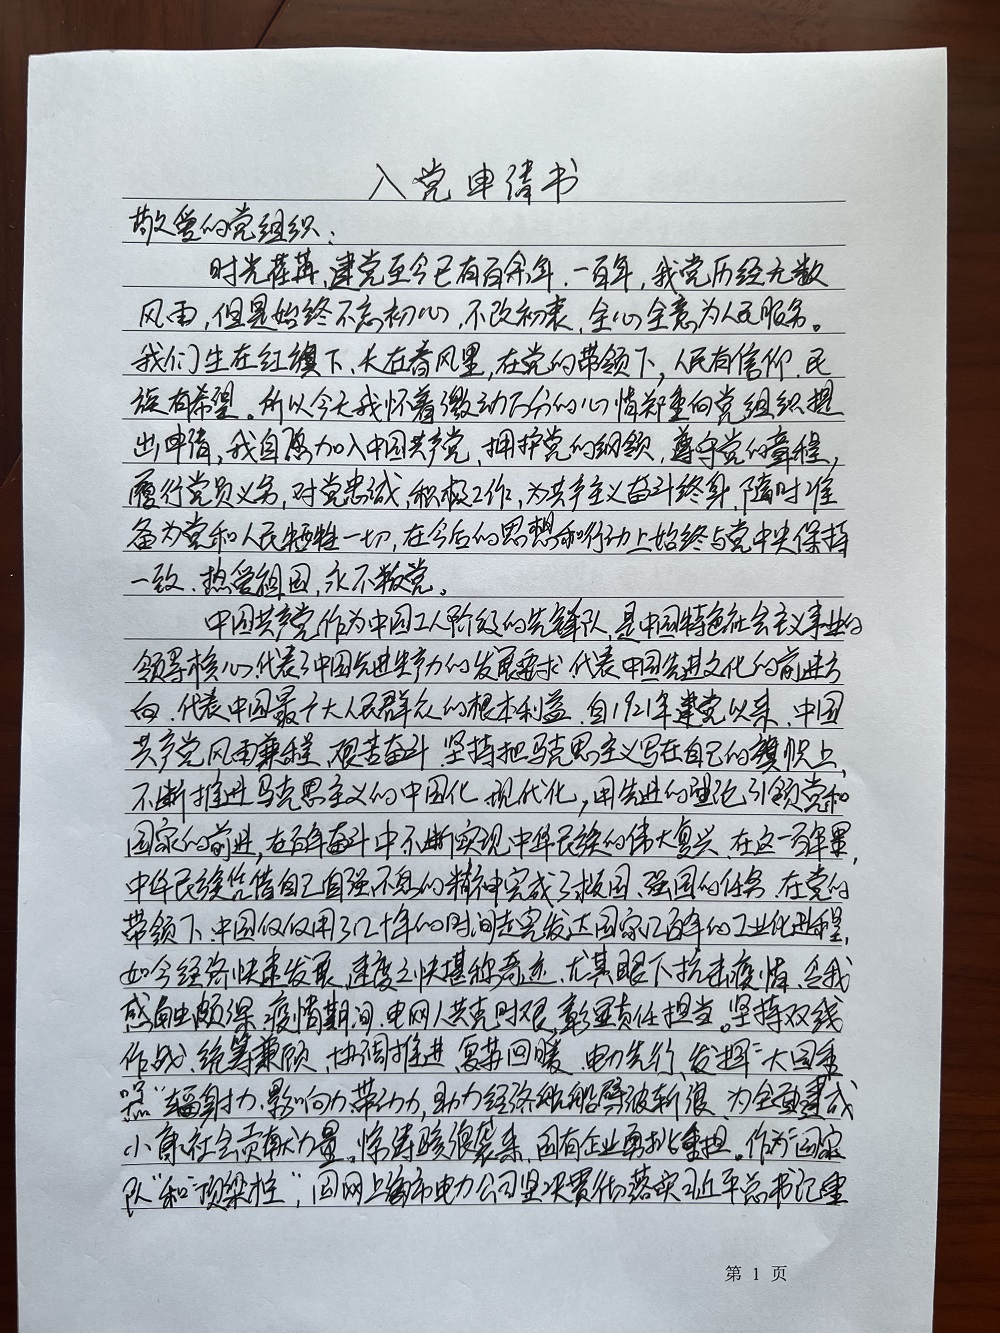 入党申请书
敬爱的党组织：
时光荏苒，建党至今已有百余年，一百年，我党历经无数
风雨，但是始终不忘初心，不改初衷，全心全意为人民服务。
我们生在红旗下，长在春风里，在党的带领下，人民有信仰，民
族有希望。所以今天我怀着激动万分的心情郑重向党组织提
出申请，我自愿加入中国共产党，拥护党的纲领，遵守党的章程，
履行党员义务，对党忠诚，积极工作，为共产主义奋斗终身，随时准
备为党和人民牺牲一切，在今后的思想和行动上始终与党中央保持
一致、热爱祖国，永不叛党。
中国共产党作为中国工人阶级的先锋队，是中国特色社会主义事业的
领导核心，代表了中国先进生产力的发展要求，代表中国先进文化的前进方
向，代表中国最广大人民群众的根本利益。自1921年建党以来，中国
共产党风雨兼程，艰苦奋斗，坚持把马克思主义写在自己的旗帜上，
不断推进马克思主义的中国化、现代化，用先进的理论引领党和
国家的前进，在百年奋斗中不断实现中华民族的伟大复兴。在这一百年里，
中华民族凭借自己自强不息的精神完成了救国、强国的任务。在党的
带领下，中国仅仅用了几十年的时间走完发达国家几百年的工业化进程，
如今经济快速发展，速度之快堪称奇迹。尤其眼下抗击疫情，令我
感触颇深，疫情期间，电网人共克时艰，彰显责任担当。坚持双线
作战，统筹兼顾，协调推进，复苏回暖，电力先行，发挥“大国重
器”辐射力、影响力、带动力，助力经济航船劈波斩浪，为全面建成
小康社会贡献力量。惊涛骇浪袭来，国有企业勇挑重担。作为“国家
队”和“顶梁柱”，国网上海市电力公司坚决贯彻落实习近平总书记重
第 1 页